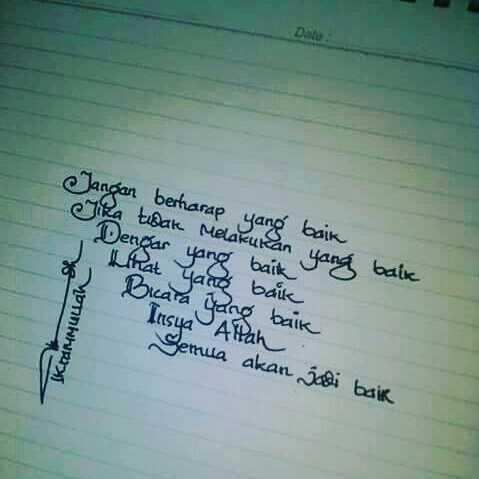 Date :
Jangan berharap yang baik
Jika tidak Melakukan yang baik
Dengar yang baik
Lihat yang baik
Bicara yang baik
Insya Allah
Semua akan jadi baik